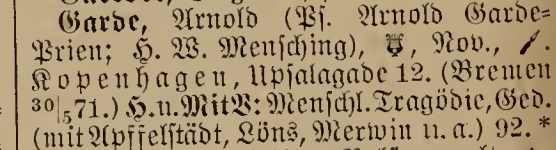 Garde, Arnold (Ps. Arnold Garde-
Prien; H. W. Mensching), Nov.,
Kopenhagen, Upsalagade 12. (Bremen
30|571.) H. u. MitV: Menschl. Tragödie, Ged.
(mit Apffelstädt, Löns, Merwin u. a.) 92. *